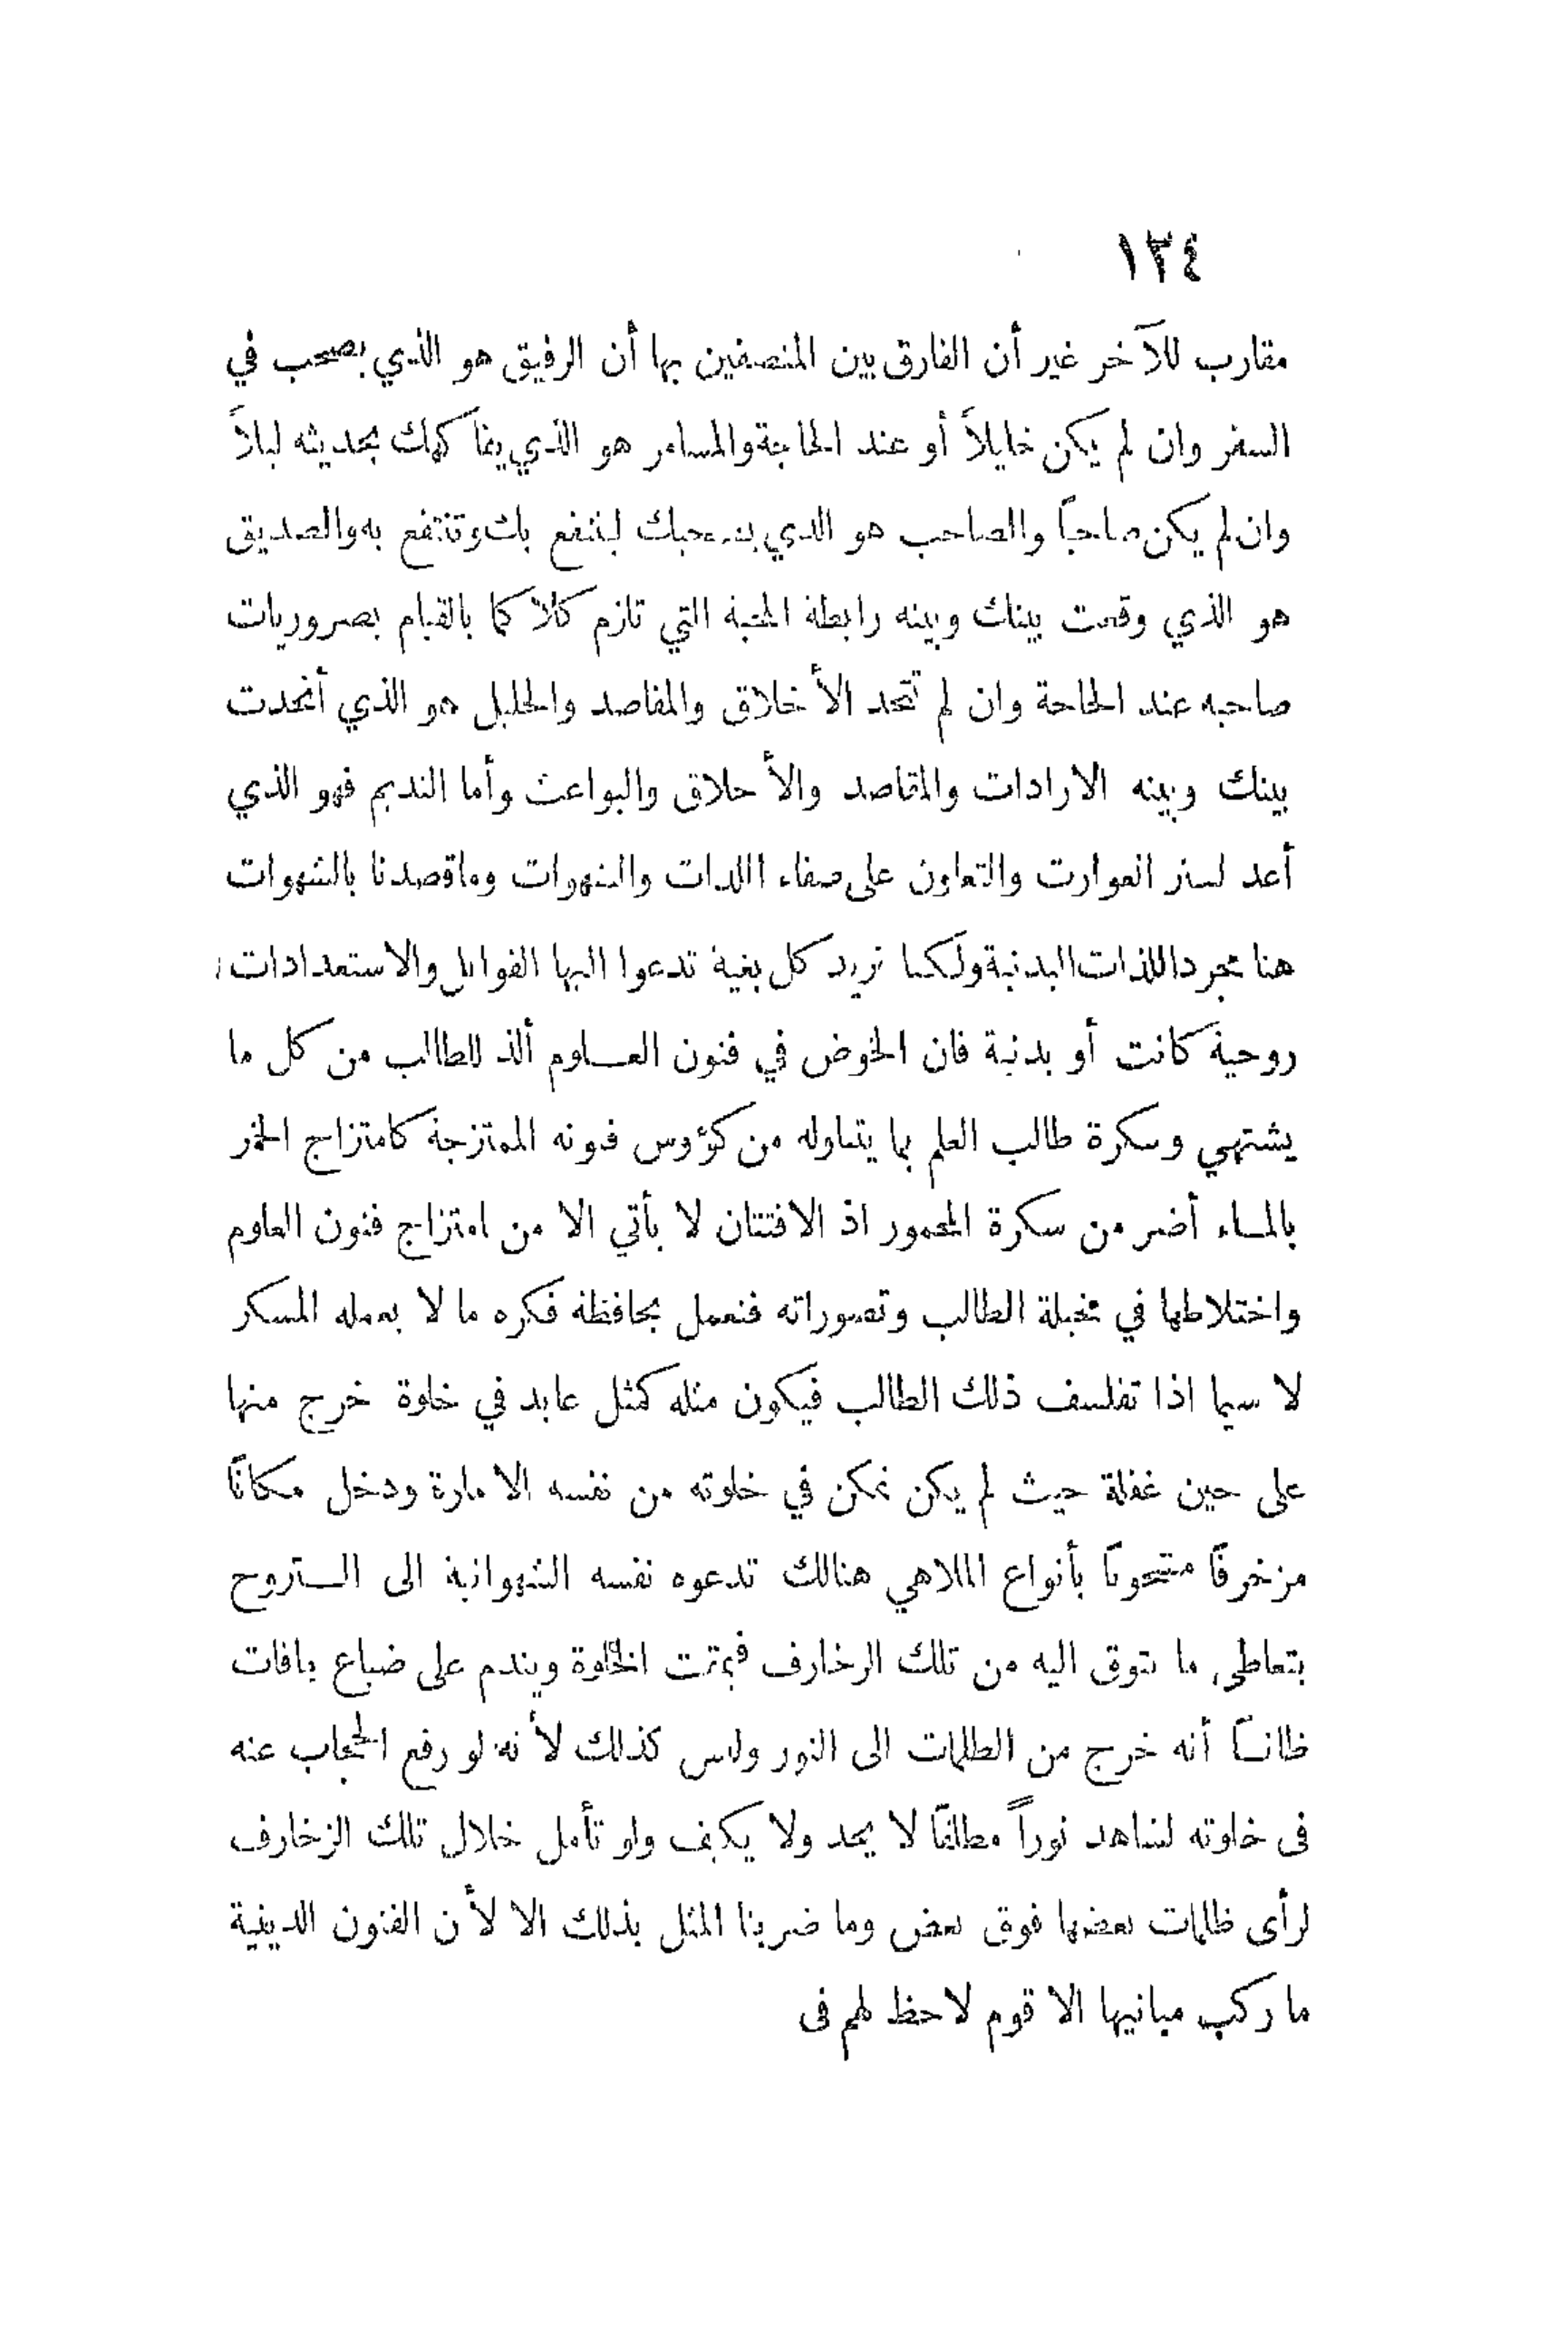 ١٣٤
مقارب للآخر غير أن الفارق بين المتصفين بها أن الرفيق هو الذي يصحب في
السفر وان لم يكن خليلاً أو عند الحاجة والمسامر هو الذي يفاكهك بحديثه ليلاً
وان لم يكن صاحباً والصاحب هو الذي يصحبك لينتفع بك وتنتفع به والصديق
هو الذي وقعت بينك وبينه رابطة المحبة التي تلزم كلاكما بالقيام بضروريات
صاحبه عند الحاجة وان لم تتحد الأخلاق والمقاصد والخليل هو الذي أتحدت
بينك وبينه الارادات والمقاصد والأخلاق والبواعث وأما النديم فهو الذي
أعد لستر العوارت والتعاون على صفاء اللذات والشهوات وما قصدنا بالشهوات
هنا مجرد اللذات البدنية ولكنا نريد كل بغية تدعوا اليها القوابل والاستعدادات
روحية كانت أو بدنية فان الخوض في فنون العلوم ألذ للطالب من كل ما
يشتهي وسكرة طالب العلم بما يتناوله من كؤوس فنونه الممتزجة كامتزاج الخمر
بالماء أضر من سكرة المخمور اذ الافتتان لا يأتي الا من امتزاج فنون العلوم
واختلاطها في مخيلة الطالب وتصوراته فتعمل بحافظة فكره ما لا يعمله المسكر
لا سيما اذا تفلسف ذلك الطالب فيكون مثله كمثل عابد في خلوة خرج منها
على حين غفلة حيث لم يكن تمكن في خلوته من نفسه الامارة ودخل مكاناً
مزخرفاً مشحوناً بأنواع الملاهي هنالك تدعوه نفسه الشهوانية الى التروح
بتعاطي ما تتوق اليه من تلك الزخارف فيمقت الخلوة ويندم على ضياع مافات
ظاناً أنه خرج من الظلمات الى النور وليس كذلك لأنه لو رفع الحجاب عنه
في خلوته لشاهد نوراً مطلقاً لا يحد ولا يكيف ولو تأمل خلال تلك الزخارف
لرأى ظلمات بعضها فوق بعض وما ضربنا المثل بذلك الا لأن الفنون الدينية
ما ركب مبانيها الا قوم لاحظ لهم في